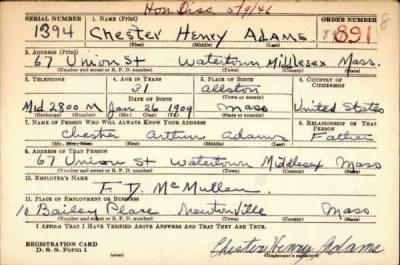 Hon. Disc 5/9/46
SERIAL NUMBER 1. NAME (Print) ORDER NUMBER
1394 Chester Henry Adams 891
(First) (Middle) (Last)
2. ADDRESS (Print)
67 Union St Watertown Middlesex Mass.
(Number and street or R. F. D. number) (Town) (County) (State)
3. TELEPHONE 4. AGE IN YEARS 5. PLACE OF BIRTH 6. COUNTRY OF CITIZENSHIP
31 Allston
DATE OF BIRTH
Mid 2800 M Jan. 26 1909 Mass United States
(Exchange) (Number) (Mo.) (Day) (Yr.) (State or country)
7. NAME OF PERSON WHO WILL ALWAYS KNOW YOUR ADDRESS 8. RELATIONSHIP OF THAT PERSON
Chester Arthur Adams Father
(Mr., Mrs., Miss) (First) (Middle) (Last)
9. ADDRESS OF THAT PERSON
67 Union St Watertown Middlesex Mass
(Number and street or R. F. D. number) (Town) (County) (State)
10. EMPLOYER'S NAME
F. D. McMullen
11. PLACE OF EMPLOYMENT OR BUSINESS
10 Bailey Place Newtonville Mass
(Number and street or R. F. D. number) (Town) (County) (State)
I AFFIRM THAT I HAVE VERIFIED ABOVE ANSWERS AND THAT THEY ARE TRUE.
REGISTRATION CARD
D. S. S. Form 1 Chester Henry Adams
(Registrant's signature)